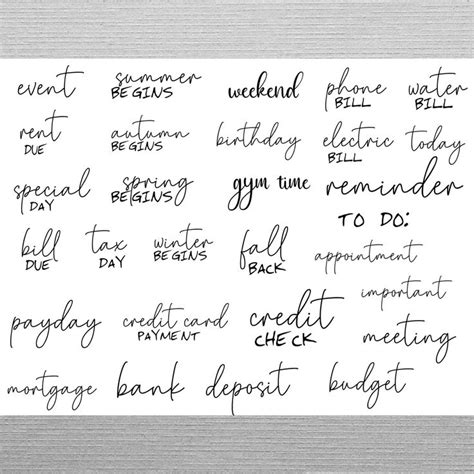 event
summer
BEGINS
weekend
phone
BILL
water
BILL
rent
DUE
autumn
BEGINS
birthday
electric
BILL
today
special
DAY
spring
BEGINS
gym time
reminder
TO DO:
bill
DUE
tax
DAY
winter
BEGINS
fall
BACK
appointment
important
payday
credit card
PAYMENT
credit
CHECK
meeting
mortgage
bank deposit
budget